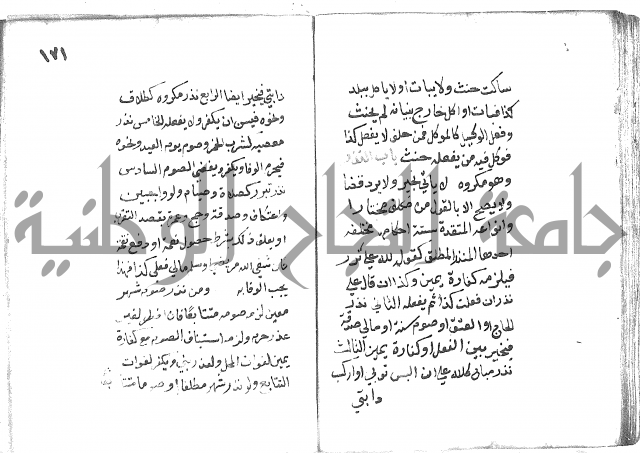 ساكت حنث ولا يبات أو لا ياكل ببلد
كذا فبات او اكل خارج بنيانه لم يحنث
وفعل الوكيل كالموكل فمن حلف لا يفعل كذا
فوكل فيه من يفعله حنث باب النذر
وهو مكروه لا ياتي بخير ولا يرد قضا
ولا يصح الا بالقول من مكلف مختار
وانواعه المنعقدة ستة احكامها مختلفة
احدها النذر المطلق كقوله لله علي نذر
فيلزمه كفارة يمين وكذا ان قال علي
نذر ان فعلت كذا ثم يفعله الثاني نذر
لجاج او العتق او صوم سنة او مالي صدقة
فيخير بين الفعل او كفارة يمين الثالث
نذر مباح كلله علي ان البس ثوبي او اركب
دابتي
١٧١
دابتي فيخير ايضا الرابع نذر مكروه كطلاق
ونحوه فيسن ان يكفر ولا يفعله الخامس نذر
معصية كشرب الخمر وصوم يوم العيد ونحوه
فيحرم الوفا ويكفر ويقضي الصوم السادس
نذر تبرر كصلاة وصيام ولو واجبين
واعتكاف وصدقة وحج وعمرة بقصد التقرب
او يعلق ذلك بشرط حصول نعمة او دفع نقمة
كان شفي الله مريضي او سلم مالي فعلي كذا فهذا
يجب الوفا به ومن نذر صوم شهر
معين لزمه صومه متتابعا فان افطر لغير
عذر حرم ولزمه استيناف الصوم مع كفارة
يمين لفوات المحل ولعذر بني ويكفر لفوات
التتابع ولو نذر شهر مطلقا او صوما متتابعا
جامعة النجاح الوطنية